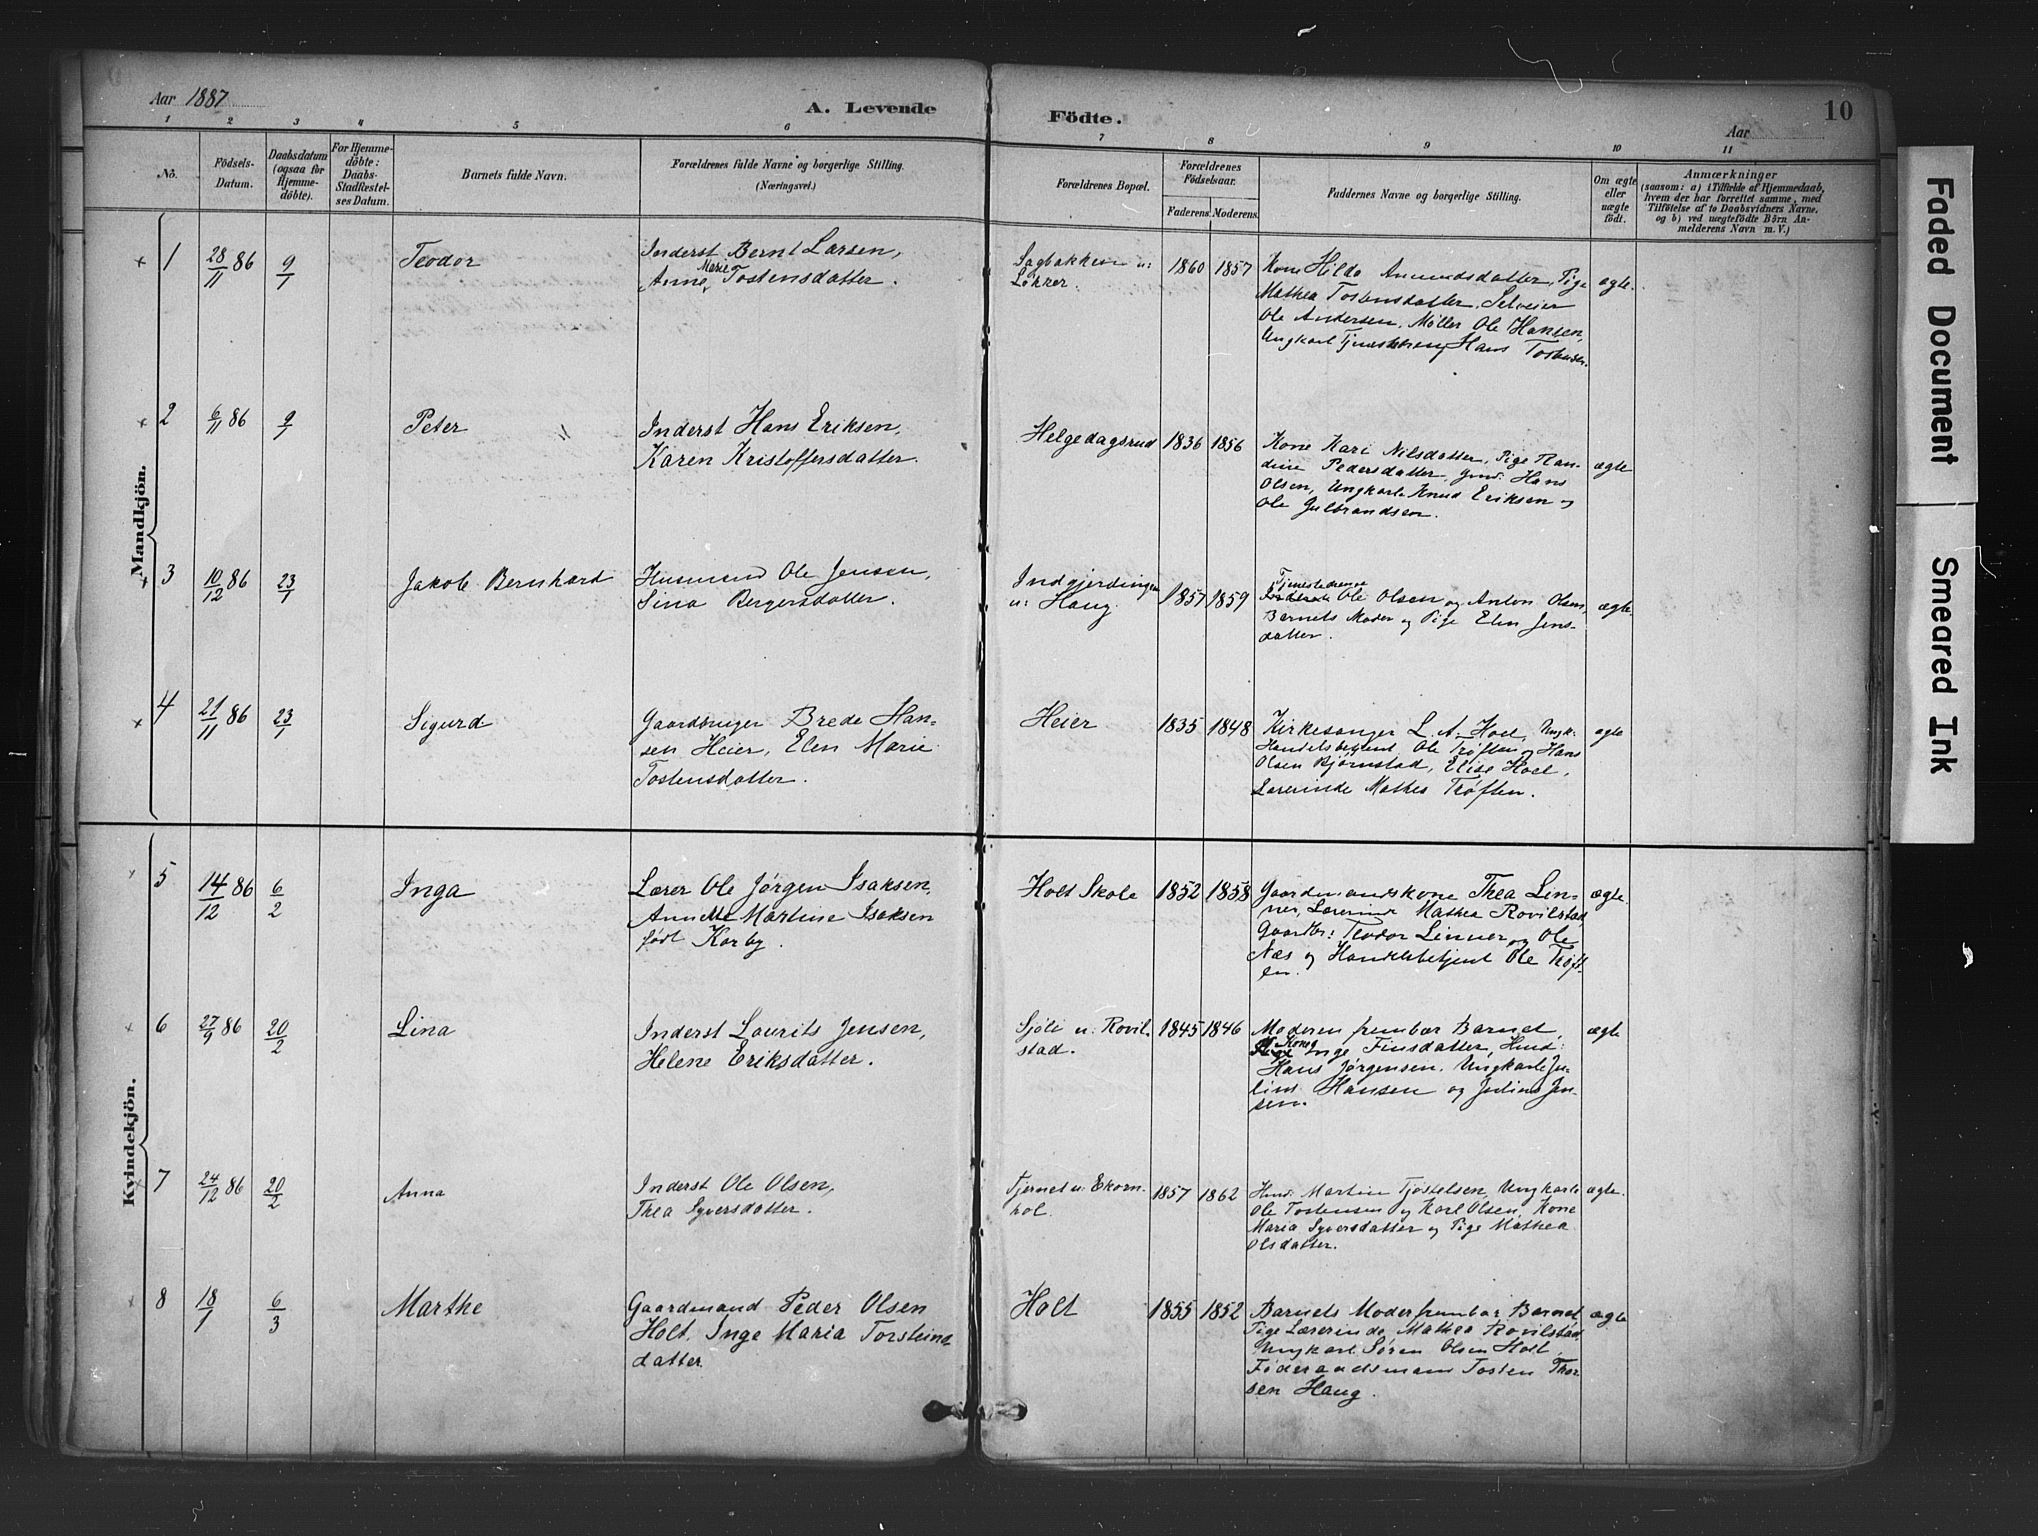 Aar 1887
A. Levende
Födte.
Aar
10
1 2 3 4 5 6 7 8 9 10 11
No.
Födsels-
Datum.
Daabsdatum
(ogsaa for
Hjemme-
döbte).
For Hjemme-
döbte:
Daabs-
Stadfæstel-
ses Datum.
Barnets fulde Navn.
Forældrenes fulde Navne og borgerlige Stilling.
(Næringsvei.)
Forældrenes Bopæl.
Forældrenes
Födselsaar.
Faderens. Moderens.
Faddernes Navne og borgerlige Stilling.
Om ægte
eller
uægte
födt.
Anmærkninger
(saasom: a) i Tilfælde af Hjemmedaab,
hvem der har forrettet samme, med
Tilföielse af to Daabsvidners Navne,
og b) ved uægtefödte Börn An-
melderens Navn m. V.)
Mandkjön.
1 28/11 86 9/1 Teodor
Inderst Bernt Larsen,
Anne Marie Tostensdatter.
Sagbakken u:
Løkker.
1860 1857
Kone Hilda Amundsdatter, Pige
Mathea Tostensdatter, Selveier
Ole Andersen, Møller Ole Hansen,
Ungkarl Tjenestedreng Hans Tostensen.
ægte.
2 6/11 86 9/1 Peter
Inderst Hans Eriksen,
Karen Kristoffersdatter.
Helgedagsrud 1836 1856
Kone Kari Nilsdatter, Pige Ran-
dine Pedersdatter, Gmd. Hans
Olsen, Ungkarle Knud Eriksen og
Ole Gulbrandsen.
ægte
3 10/12 86 23/1 Jakob Bernhard
Husmand Ole Jensen,
Sina Bergersdatter.
Indgjerdingen
u: Haug.
1857 1859
Tjenestedrenge
Ole Olsen og Anton Olsen,
Barnets Moder og Pige Elen Jens-
datter.
ægte
4 21/11 86 23/1 Sigurd
Gaardbruger Brede Han-
sen Heier, Elen Marie
Tostensdatter.
Heier 1835 1848
Kirkesanger L. A. Hoel, Ungk.
Handelsbetjent Ole Trøften og Hans
Olsen Bjørnstad, Elise Hoel,
Lærerinde Mathea Trøften.
ægte
Kvindekjön.
5 14/12 86 6/2 Inga
Lærer Ole Jørgen Isaksen,
Annette Martine Isaksen
født Korby.
Holt Skole 1852 1858
Gaardmandskone Thea Lin-
ner, Lærerinde Mathea Rovilstad,
Gaardbr: Teodor Linner og Ole
Næs og Handelsbetjent Ole Trøft-
en.
ægte
6 27/9 86 20/2 Lina
Inderst Laurits Jensen,
Helene Eriksdatter.
Sjøli u: Rovil-
stad.
1845 1846
Moderen frembar Barnet,
Kone Inge Finsdatter, Hmd:
Hans Jørgensen, Ungkarle Ju-
lius Hansen og Julius Jen-
sen.
ægte
7 24/12 86 20/2 Anna
Inderst Ole Olsen,
Thea Syversdatter.
Tjernet u: Ekorn-
hol.
1857 1862
Hmd: Martin Tjostelsen, Ungkarle
Ole Tostensen og Karl Olsen, Kone
Maria Syversdatter og Pige Mathea
Olsdatter.
ægte.
8 18/1 6/3 Marthe
Gaardmand Peder Olsen
Holt, Inge Maria Torsteins-
datter
Holt 1855 1852
Barnets Moder frembar Barnet,
Pige Lærerinde Mathea Rovilstad,
Ungkarl Søren Olsen Holt,
Føderaadsmand Tosten Thor-
sen Haug.
ægte
Faded Document
Smeared Ink